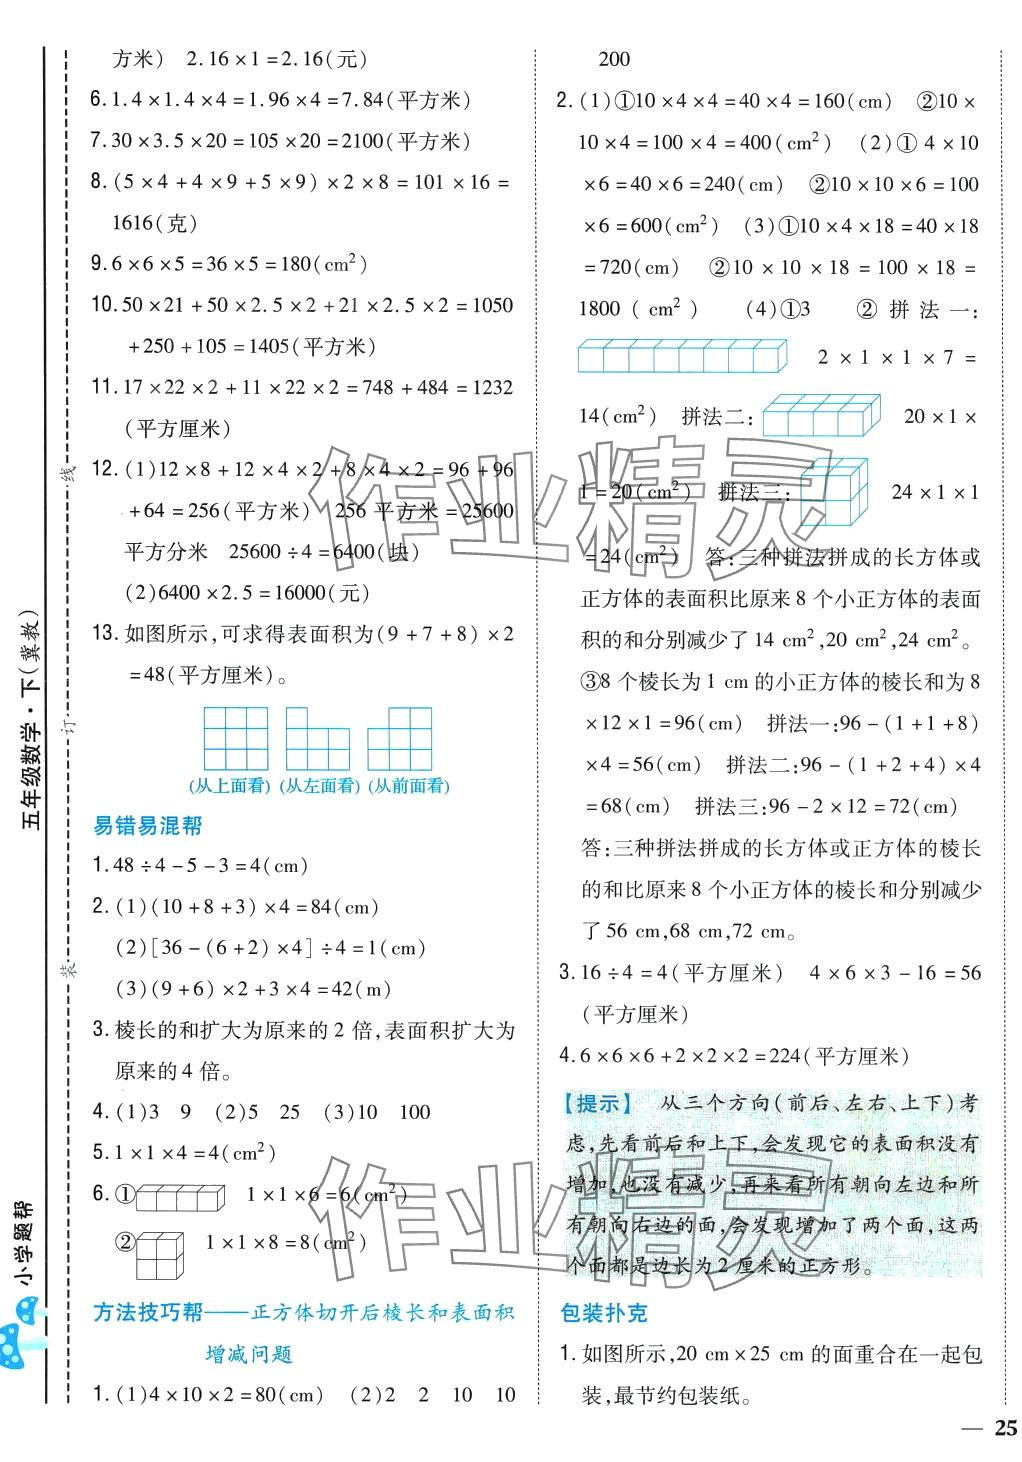 方米)　2.16×1=2.16(元)
6.1.4×1.4×4=1.96×4=7.84(平方米)
7.30×3.5×20=105×20=2100(平方米)
8.(5×4+4×9+5×9)×2×8=101×16=
1616(克)
9.6×6×5=36×5=180(cm²)
10.50×21+50×2.5×2+21×2.5×2=1050
+250+105=1405(平方米)
11.17×22×2+11×22×2=748+484=1232
(平方厘米)
12.(1)12×8+12×4×2+8×4×2=96+96
+64=256(平方米)　256平方米=25600
平方分米　25600÷4=6400(块)
(2)6400×2.5=16000(元)
13.如图所示,可求得表面积为(9+7+8)×2
=48(平方厘米)。
(从上面看)　(从左面看)　(从前面看)
易错易混帮
1.48÷4-5-3=4(cm)
2.(1)(10+8+3)×4=84(cm)
(2)[36-(6+2)×4]÷4=1(cm)
(3)(9+6)×2+3×4=42(m)
3.棱长的和扩大为原来的2倍,表面积扩大为
原来的4倍。
4.(1)3　9　(2)5　25　(3)10　100
5.1×1×4=4(cm²)
6.①　1×1×6=6(cm²)
②　1×1×8=8(cm²)
方法技巧帮——正方体切开后棱长和表面积
增减问题
1.(1)4×10×2=80(cm)　(2)2　2　10　10
200
2.(1)①10×4×4=40×4=160(cm)　②10×
10×4=100×4=400(cm²)　(2)①4×10
×6=40×6=240(cm)　②10×10×6=100
×6=600(cm²)　(3)①10×4×18=40×18
=720(cm)　②10×10×18=100×18=
1800(cm²)　(4)①3　②拼法一:
2×1×1×7=
14(cm²)　拼法二:　20×1×
1=20(cm²)　拼法三:　24×1×1
=24(cm²)　答:三种拼法拼成的长方体或
正方体的表面积比原来8个小正方体的表面
积的和分别减少了14 cm²,20 cm²,24 cm²。
③8个棱长为1 cm的小正方体的棱长和为8
×12×1=96(cm)　拼法一:96-(1+1+8)
×4=56(cm)　拼法二:96-(1+2+4)×4
=68(cm)　拼法三:96-2×12=72(cm)
答:三种拼法拼成的长方体或正方体的棱长
的和比原来8个小正方体的棱长和分别减少
了56 cm,68 cm,72 cm。
3.16÷4=4(平方厘米)　4×6×3-16=56
(平方厘米)
4.6×6×6+2×2×2=224(平方厘米)
【提示】　从三个方向(前后、左右、上下)考
虑,先看前后和上下,会发现它的表面积没有
增加,也没有减少,再来看所有朝向左边和所
有朝向右边的面,会发现增加了两个面,这两
个面都是边长为2厘米的正方形。
包装扑克
1.如图所示,20 cm×25 cm的面重合在一起包
装,最节约包装纸。
— 25
五年级数学·下(冀教)
小学题帮
线
订
装
作业精灵
作业精灵